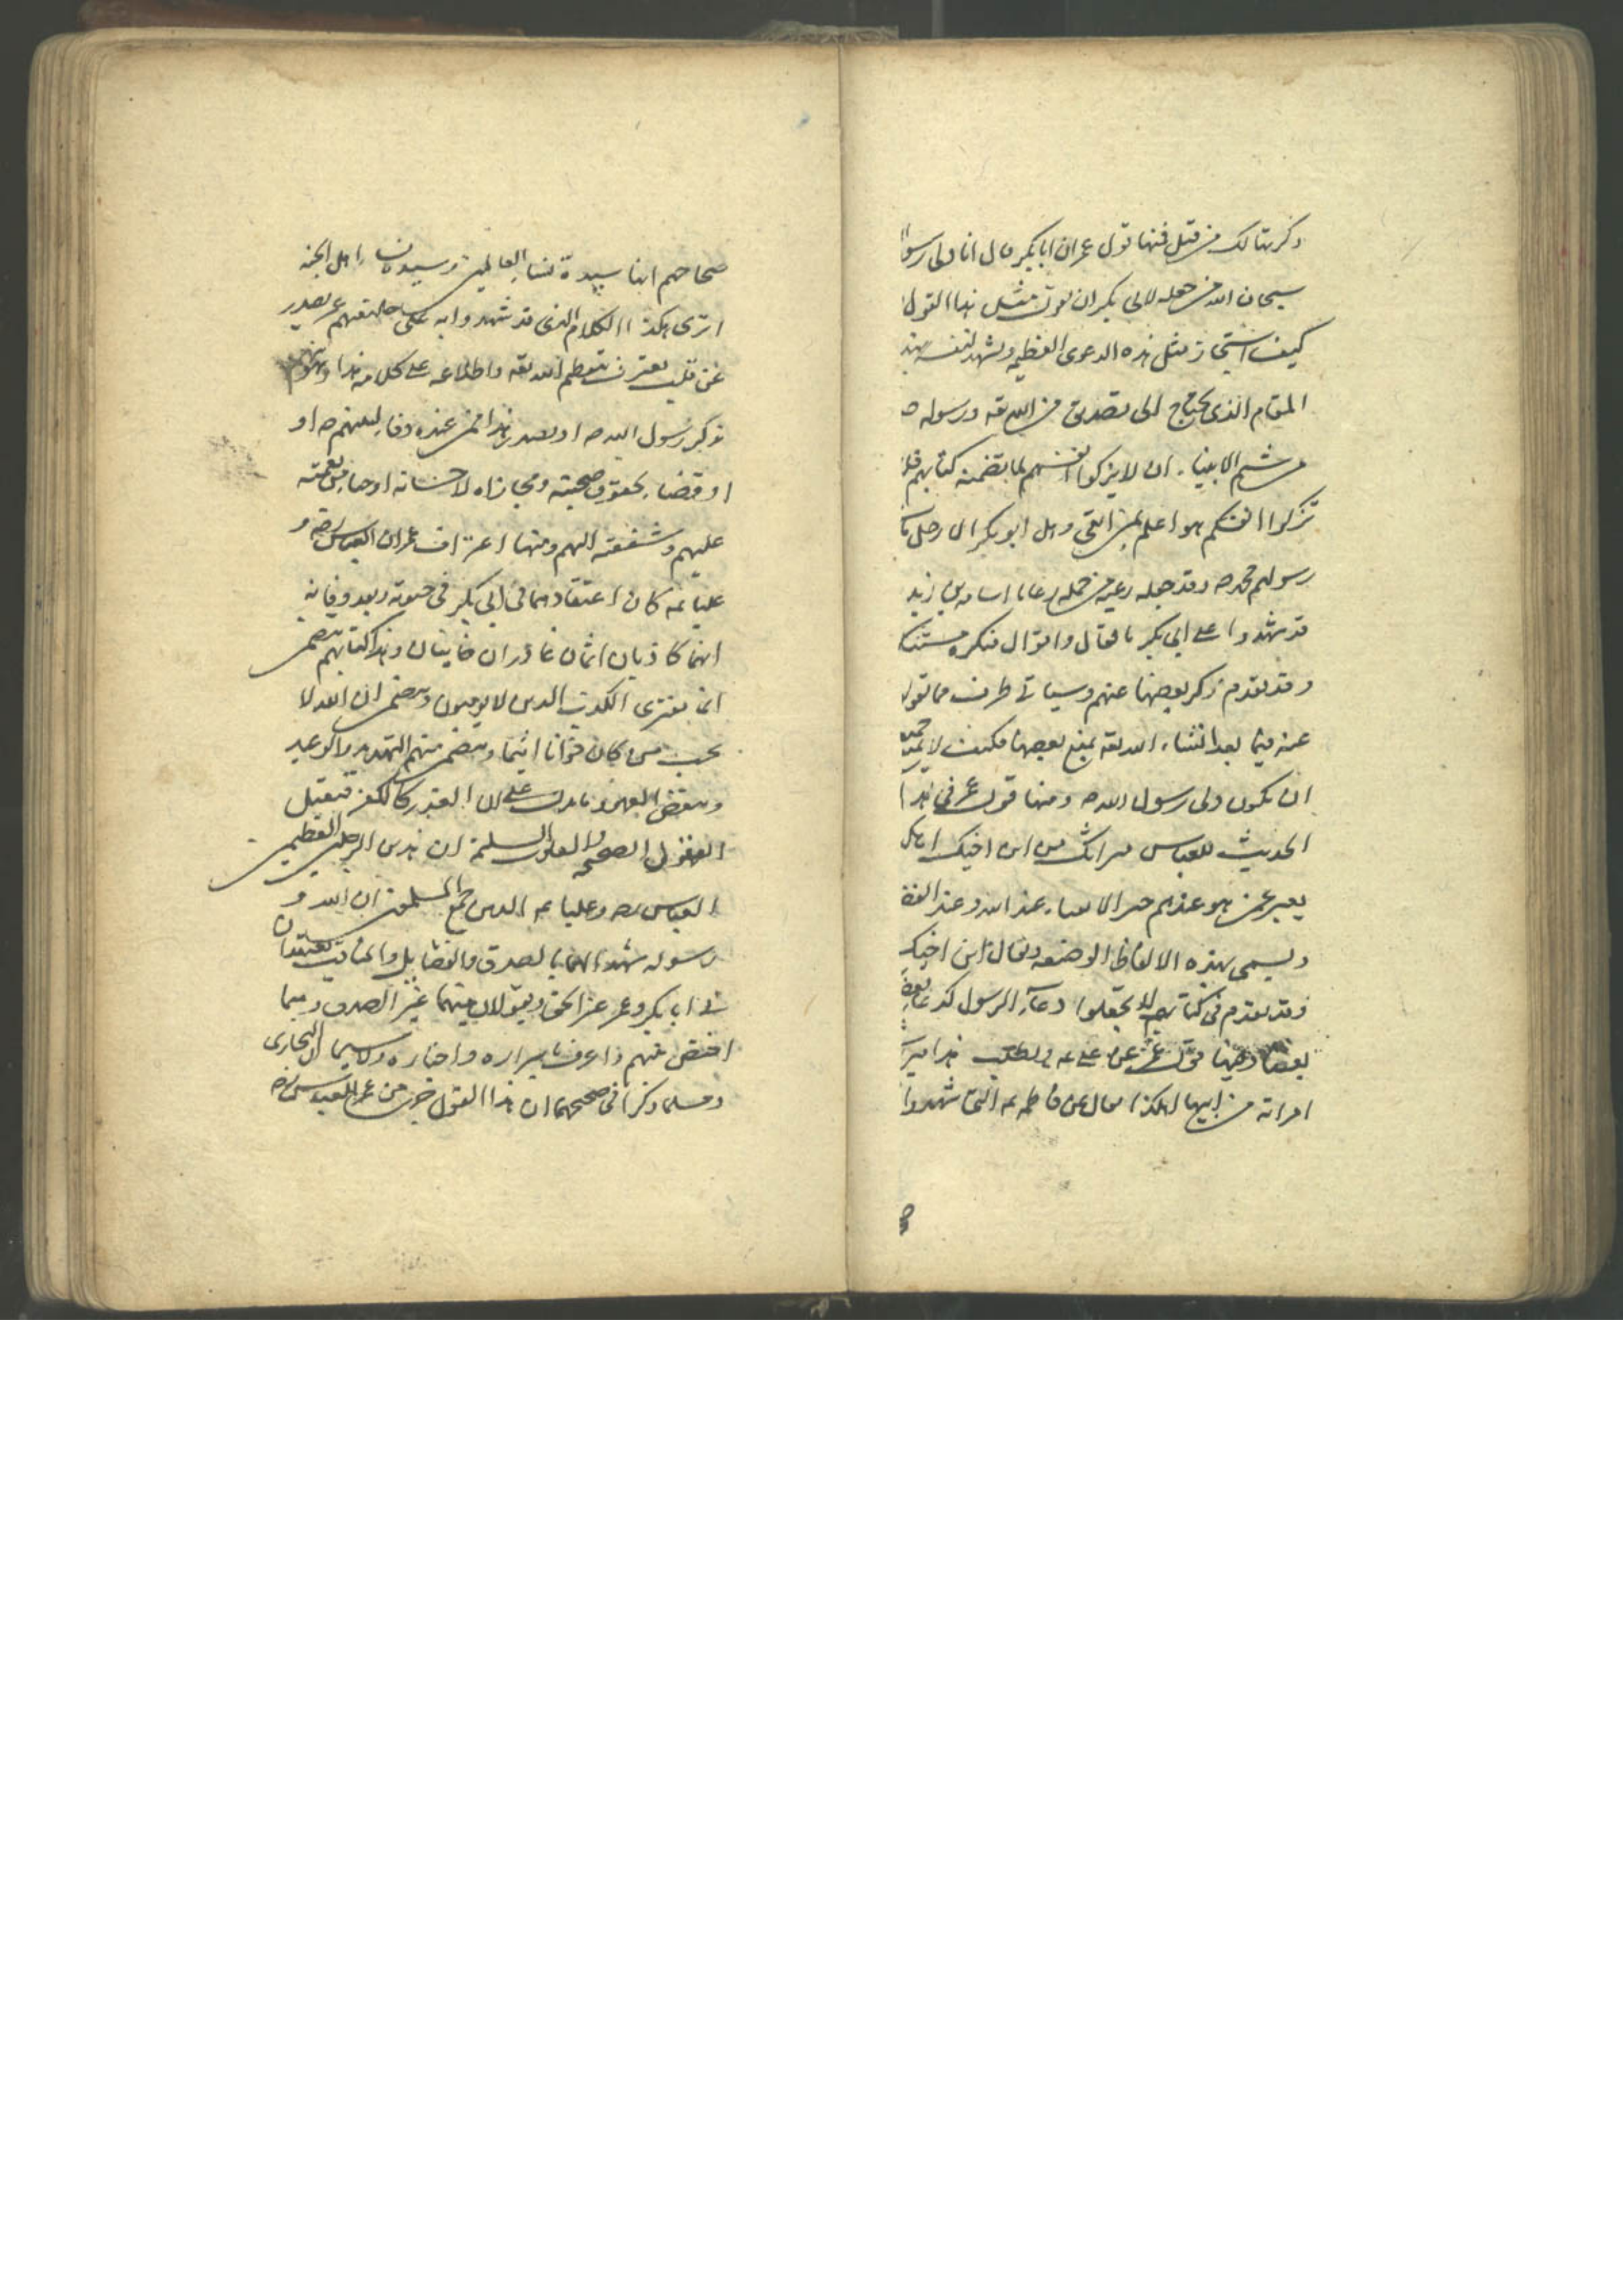 ذكرتها لك من قبل فمنها قول عمر ان ابا بكر قال انا ولي رسول
سبحان الله من جعله لابي بكر ان يقول مثل هذا القول
كيف استجاز مثل هذه الدعوى العظيمة وشهد لنفسه بهذا
المقام الذي يحتاج الى تصديق من الله تعه ورسوله ص
من شيم الانبياء ان لا يزكوا انفسهم لما يتضمنه كتابهم فلا
تزكوا انفسكم هو اعلم بمن اتقى وهل ابو بكر الا رجل
رسولهم محمد ص وقد جعله رعية من جملة رعايا اسامة بن زيد
قد شهدوا على ابي بكر بافعال واقوال منكرة
وقد تقدم ذكر بعضها عنهم وسياتي طرف مما
عنه فيما بعد انشاء الله تعه يمنع بعضها فكيف لا
ان يكون ولي رسول الله ص ومنها قول عمر في هذا
الحديث للعباس ميراثك من ابن اخيك اهكذا
يعبر عمن هو عندهم خير الانبياء عند الله وعند
ويسمى بهذه الالفاظ الوضيعة ويقال ابن اخيك
وقد تقدم في كتابهم لا تجعلوا دعاء الرسول كدعاء بعضكم
بعضا ومنها قول عمر عن علي عه ويطلب هذا ميراث
امراته من ابيها اهكذا يقال عن فاطمة عه التي شهدوا
صحاحهم انها سيدة نساء العالمين وسيدة نساء اهل الجنة
اترى هكذا الكلام الذي قد شهدوا به على خليفتهم عمر يصدر
عن قلب يعترف بتعظيم الله تعه واطلاعه على كلامه هذا
تذكر رسول الله ص او يصدر هذا ممن عنده وفاء لبيتهم ص او
او قضاء لحقوق صحبته ومجازاة لاحسانه او حياء من نعمته
عليهم وشفقته اليهم ومنها اعتراف عمر ان العباس رضه و
عليا عه كان اعتقادهما في ابي بكر في حيوته وبعد وفاته
انهما كاذبان اثمان غادران خاينان وهذا كتابهم يتضمن
انما يفتري الكذب الذين لا يؤمنون ويتضمن ان الله لا
يحب من كان خوانا اثيما ويتضمن منهم التهديد والوعيد
ونقض العهود ما يدل على ان الغدر كالكفر فتقبل
العقول الصحيحة والقلوب السليمة ان هذين الرجلين العظيمين
العباس رضه وعليا عه الذين جمع المسلمون ان الله و
رسوله شهدا لهما بالصدق والفضايل والمناقب يعتقدان
في ابا بكر وعمر غير الحق ويقولان فيهما غير الصدق وهما
اخص منهم واعرف باسراره واخباره ولا سيما ان البخاري
ومسلما ذكرا في صحيحهما ان هذا القول جرى من عمر للعباس رضه